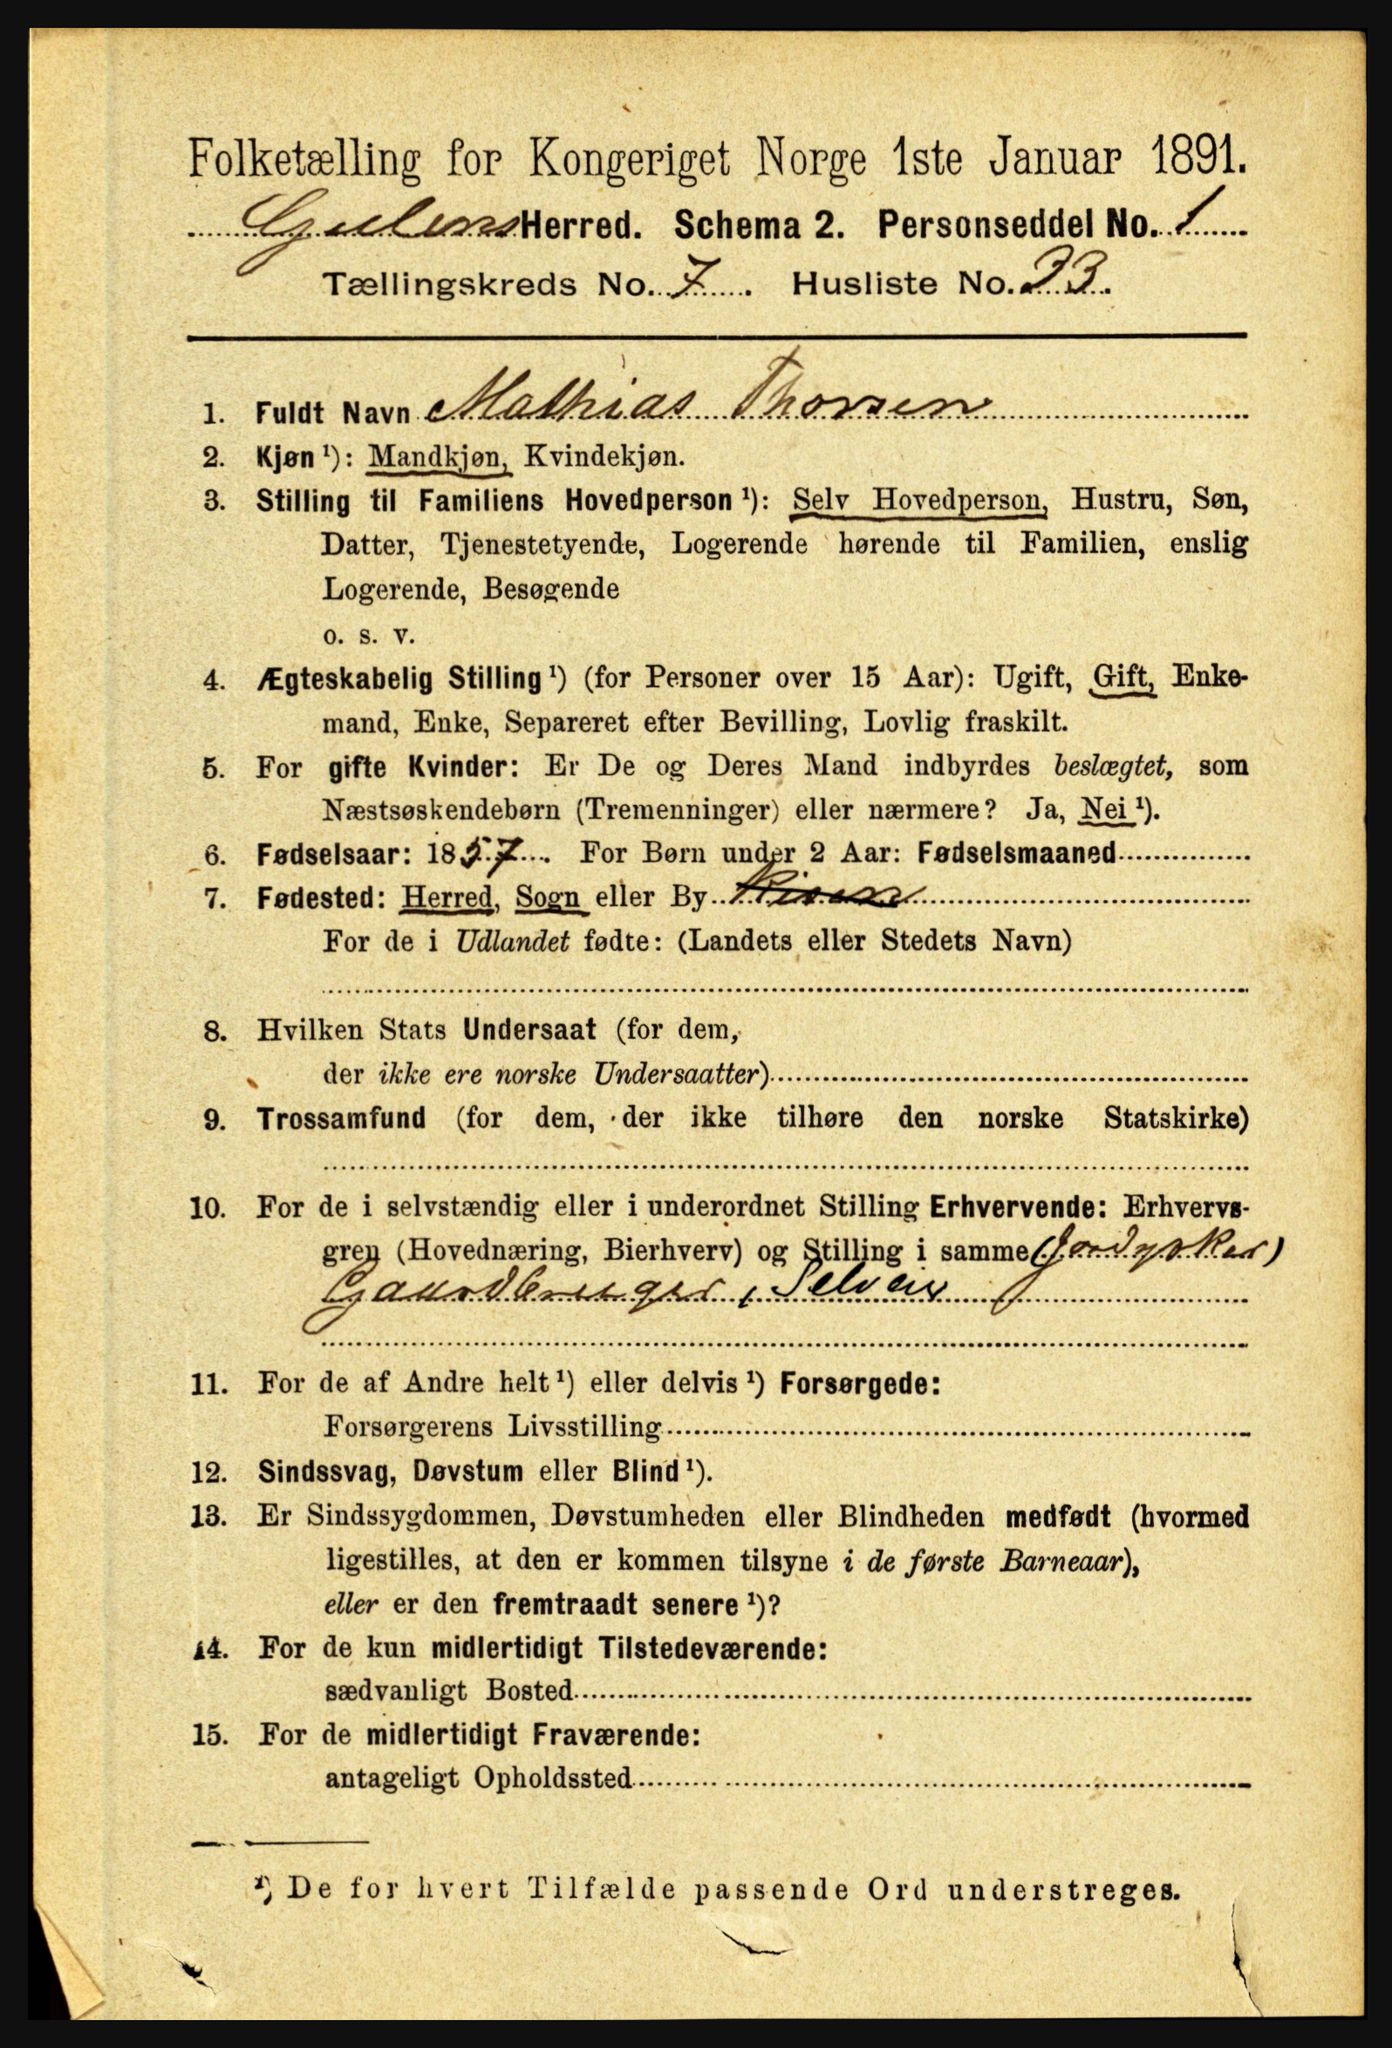 Folketælling for Kongeriget Norge 1ste Januar 1891.
Gulens Herred. Schema 2. Personseddel No. 1
Tællingskreds No. 7. Husliste No. 33.
1. Fuldt Navn Mathias Thorsen
2. Kjøn ¹): Mandkjøn, Kvindekjøn.
3. Stilling til Familiens Hovedperson ¹): Selv Hovedperson, Hustru, Søn,
Datter, Tjenestetyende, Logerende hørende til Familien, enslig
Logerende, Besøgende
o. s. v.
4. Ægteskabelig Stilling ¹) (for Personer over 15 Aar): Ugift, Gift, Enke-
mand, Enke, Separeret efter Bevilling, Lovlig fraskilt.
5. For gifte Kvinder: Er De og Deres Mand indbyrdes beslægtet, som
Næstsøskendebørn (Tremenninger) eller nærmere? Ja, Nei ¹).
6. Fødselsaar: 1857. For Børn under 2 Aar: Fødselsmaaned
7. Fødested: Herred, Sogn eller By
For de i Udlandet fødte: (Landets eller Stedets Navn)
8. Hvilken Stats Undersaat (for dem,
der ikke ere norske Undersaatter)
9. Trossamfund (for dem, der ikke tilhøre den norske Statskirke)
10. For de i selvstændig eller i underordnet Stilling Erhvervende: Erhvervs-
gren (Hovednæring, Bierhverv) og Stilling i samme (Jordyrker)
Gaardbruger, Selveier
11. For de af Andre helt ¹) eller delvis ¹) Forsørgede:
Forsørgerens Livsstilling
12. Sindssvag, Døvstum eller Blind ¹).
13. Er Sindssygdommen, Døvstumheden eller Blindheden medfødt (hvormed
ligestilles, at den er kommen tilsyne i de første Barneaar),
eller er den fremtraadt senere ¹)?
14. For de kun midlertidigt Tilstedeværende:
sædvanligt Bosted
15. For de midlertidigt Fraværende:
antageligt Opholdssted
¹) De for hvert Tilfælde passende Ord understreges.